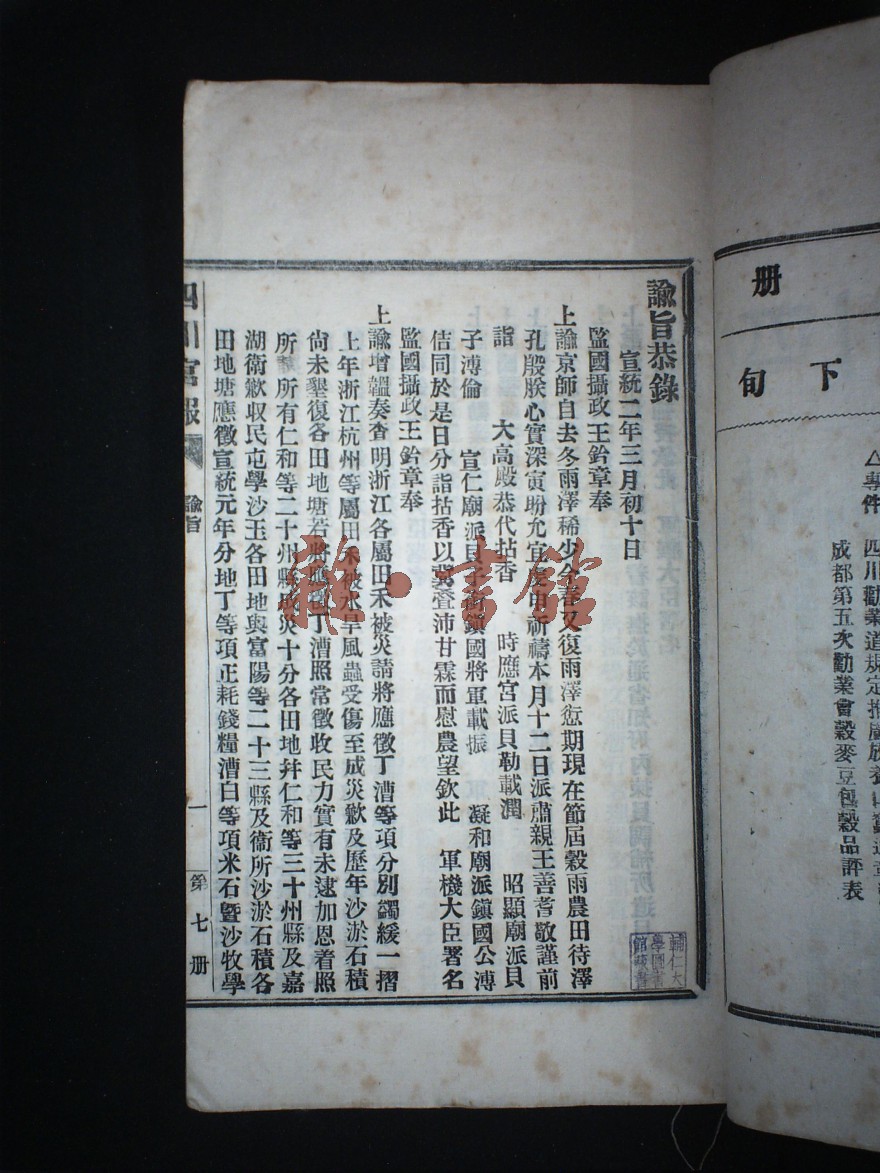 册
下旬
△專件
四川勸業道規定推廣放養山蠶
成都第五次勸業會穀麥豆包穀品評表
諭旨恭錄
宣統二年三月初十日
監國攝政王鈐章奉
上諭京師自去冬雨澤稀少今春又復雨澤愆期現在節屆穀雨農田待澤
孔殷朕心實深寅盼允宜虔申祈禱本月十二日派肅親王善耆敬謹前
詣 大高殿恭代拈香 時應宮派貝勒載潤 昭顯廟派貝
子溥倫 宣仁廟派貝子銜鎮國將軍載振 凝和廟派鎮國公溥
佶同於是日分詣拈香以冀疊沛甘霖而慰農望欽此 軍機大臣署名
監國攝政王鈐章奉
上諭增韞奏查明浙江各屬田禾被災請將應徵丁漕等項分別蠲緩一摺
上年浙江杭州等屬田禾被水旱風蟲受傷至成災歉及歷年沙淤石積
尚未墾復各田地塘若將應徵丁漕照常徵收民力實有未逮加恩着照
所請所有仁和等二十州縣成災十分各田地幷仁和等三十州縣及嘉
湖衛歉収民屯學沙玉各田地與富陽等二十三縣及衞所沙淤石積各
田地塘應徵宣統元年分地丁等項正耗錢糧漕白等項米石曁沙牧學
四川官報
諭旨
一
第七册
輔仁大
學圖書
館藏書
雜·書館